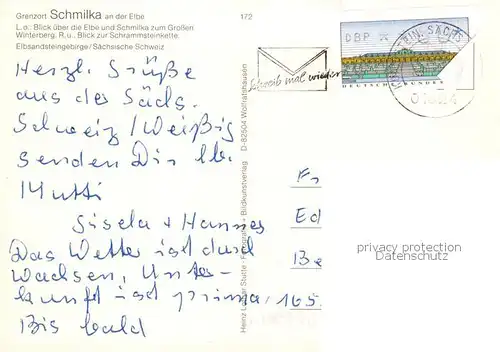 Grenzort Schmilka an der Elbe
L. o.: Blick über die Elbe und Schmilka zum Großen
Winterberg. R. u.: Blick zur Schrammsteinkette.
Elbsandsteingebirge/Sächsische Schweiz
172
Herzl. Grüße
aus der Sächs.
Schweiz / Weißig
senden Dir lb.
Mutti
Gisela + Hannes
Das Wetter ist durch
wachsen, Unter-
kunft ist prima,
Bis bald
Schreib mal wieder
DBP
DEUTSCHE BUNDES
SACHS
Heinz Lothar Stutte - Fotografie + Bildkunstverlag D-82504 Wolfratshausen
Fr
Ed
Be
privacy protection
Datenschutz